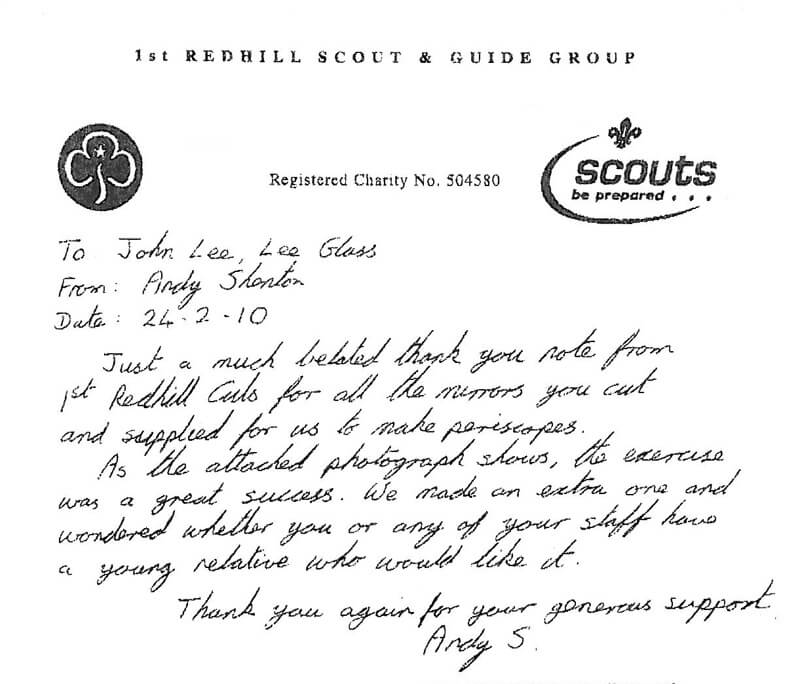 1st REDHILL SCOUT & GUIDE GROUP
Registered Charity No. 504580
scouts
be prepared . . .
To John Lee, Lee Glass
From: Andy Shenton
Date: 24-2-10
Just a much belated thank you note from
1st Redhill Cubs for all the mirrors you cut
and supplied for us to make periscopes.
As the attached photograph shows, the exercise
was a great success. We made an extra one and
wondered whether you or any of your staff have
a young relative who would like it.
Thank you again for your generous support
Andy S.